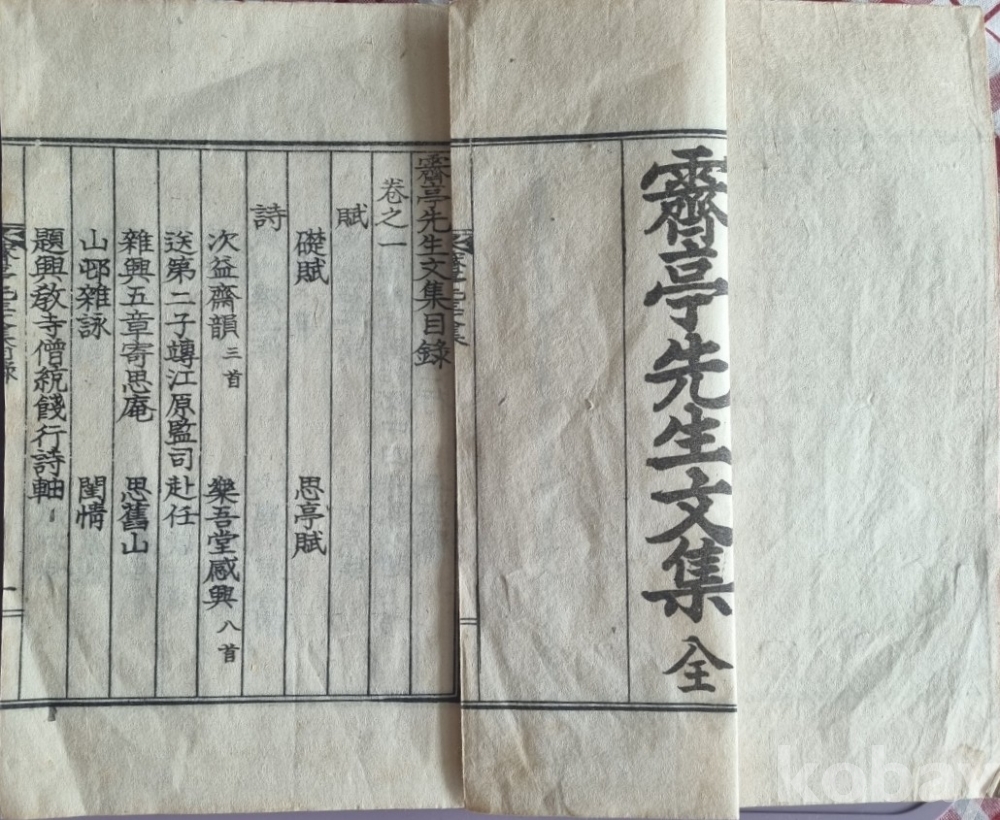 霽亭先生文集 全
霽亭先生文集目錄
卷之一
賦
礎賦 思亭賦
詩
次益齋韻三首 樂吾堂感興八首
送第二子竱江原監司赴任
雜興五章寄思庵 思舊山
山邨雜詠 閨情
題興敎寺僧統餞行詩軸
一
kobay